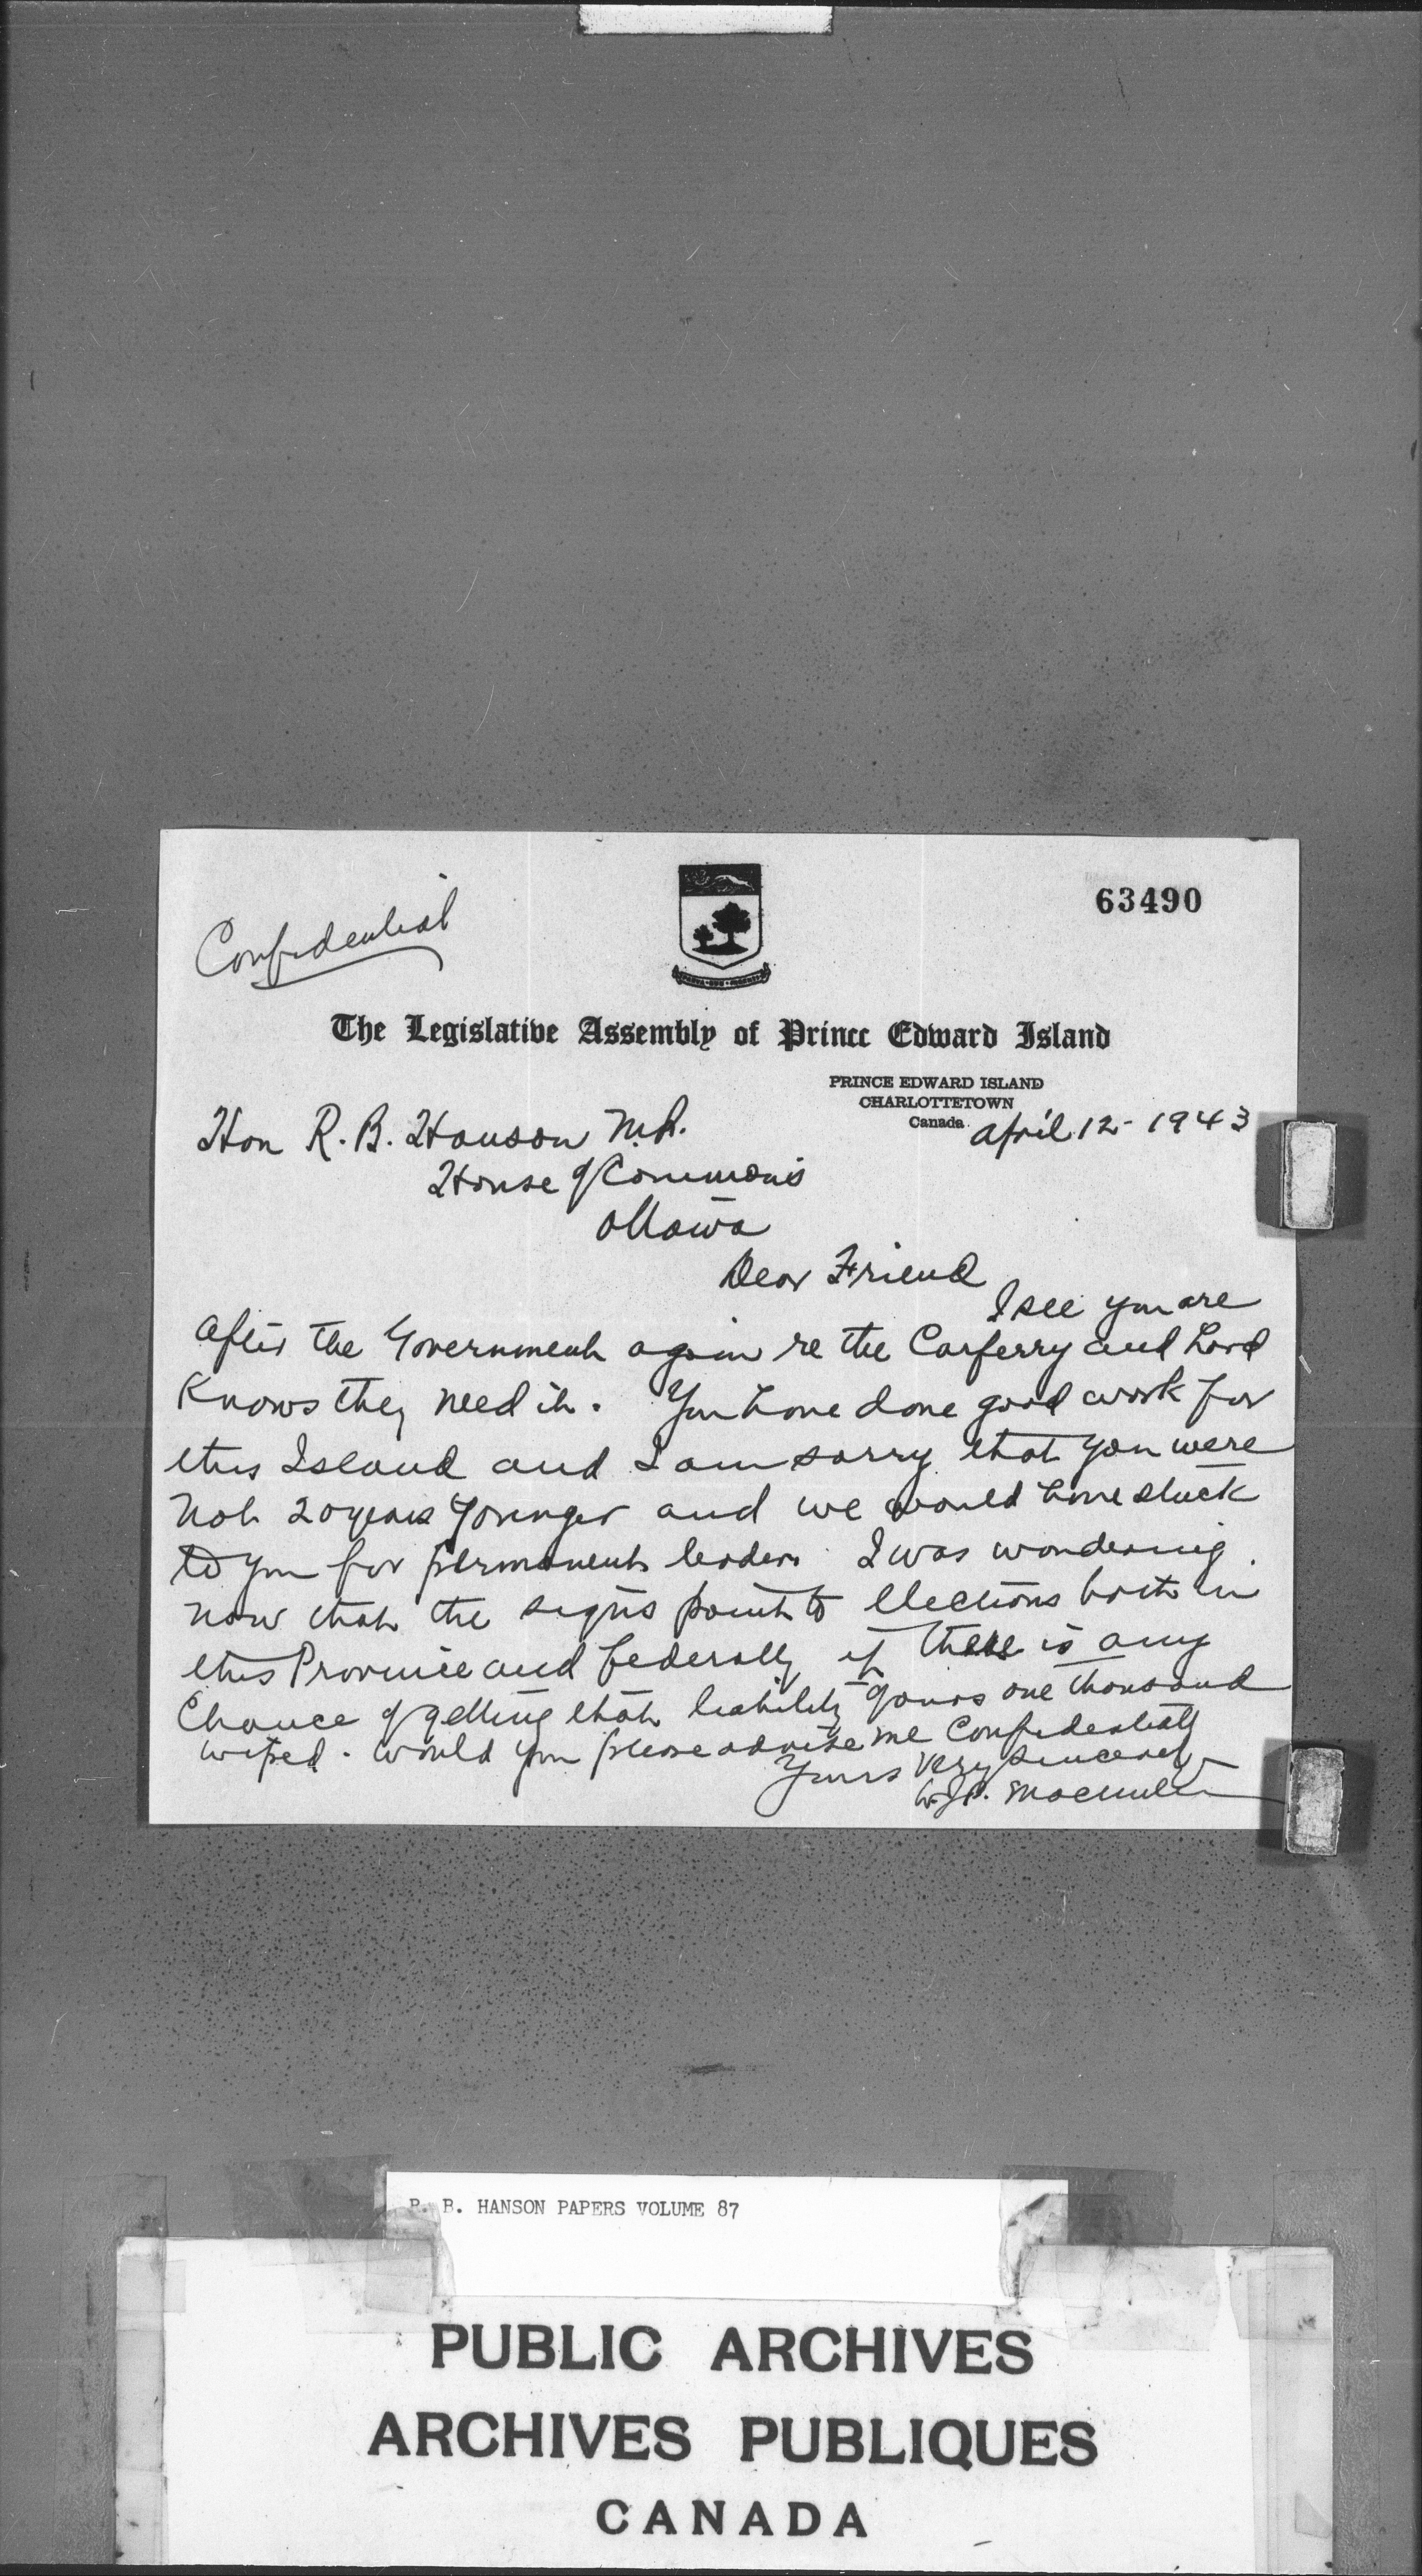 63490
Confidential
The Legislative Assembly of Prince Edward Island
PRINCE EDWARD ISLAND
CHARLOTTETOWN
Canada
April 12 - 1943
Hon R. B. Hanson M.P.
House of Commons
Ottawa
Dear Friend
I see you are
after the Government again re the Carferry and Lord
Knows they need it. You have done good work for
this Island and I am sorry that you were
not 20 years younger and we would have stuck
to you for permanent leader. I was wondering
now that the signs point to Elections both in
this Province and federally if there is any
Chance of getting that liability of ours one thousand
wiped. Would you please advise me Confidentially
Yours Very Sincerely
W. J. P. MacMillan
R. B. HANSON PAPERS VOLUME 87
PUBLIC ARCHIVES
ARCHIVES PUBLIQUES
CANADA